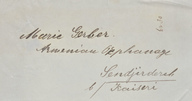 Marie Gerber.
Armenian Orphanage
Zendjirdereh
b/ Kaiseri